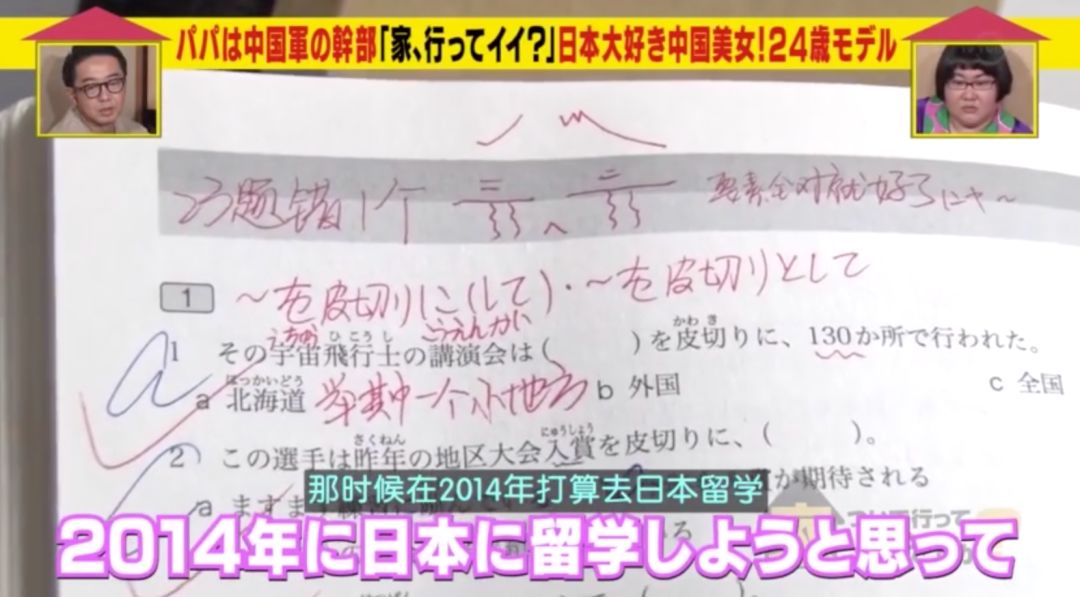 パパは中国軍の幹部「家、行ってイイ?」日本大好き中国美女!24歳モデル
23题错1个
要素全対就好了にゃ~
1 ~を皮切りに(して)・~を皮切りとして
うちゅう ひこうし こうえんかい かわき
1 その宇宙飛行士の講演会は( )を皮切りに、130か所で行われた。
ほっかいどう
a 北海道 举其中一个小地方 b 外国 c 全国
さくねん にゅうしょう
2 この選手は昨年の地区大会入賞を皮切りに、( )。
a ますます
が期待される
那时候在2014年打算去日本留学
2014年に日本に留学しようと思って